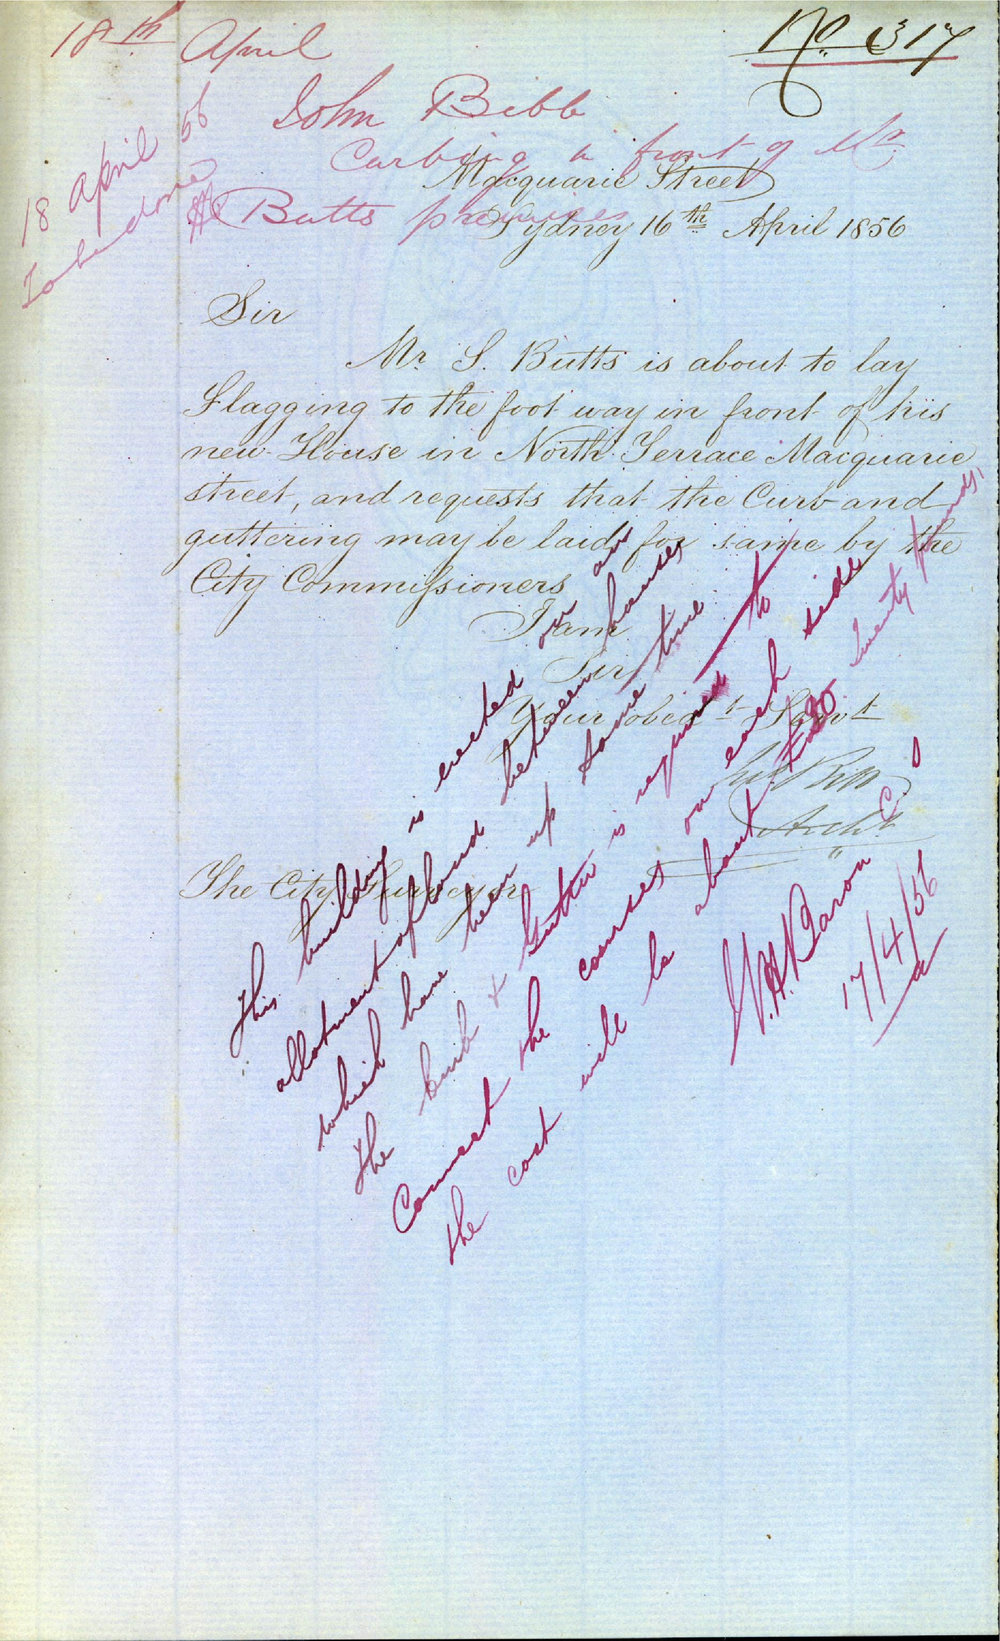 18th April
No. 317
John Bibb
Curbing in front of Mr
Butts premises
18 April 56
To be done
Macquarie Street
Sydney 16th April 1856
Sir
Mr. S. Butts is about to lay
Flagging to the foot way in front of his
new House in North Terrace Macquarie
street, and requests that the Curb and
guttering may be laid for same by the
City Commissioners
I am
Sir
Your obedt Servt
Jno Bibb
Archt
The City Surveyor
This building is erected on an
allotment of land between houses
which have been up some time
the Curb & Gutter is required to
Connect the courses on each side
the cost will be about £20 twenty pounds
17/4/56